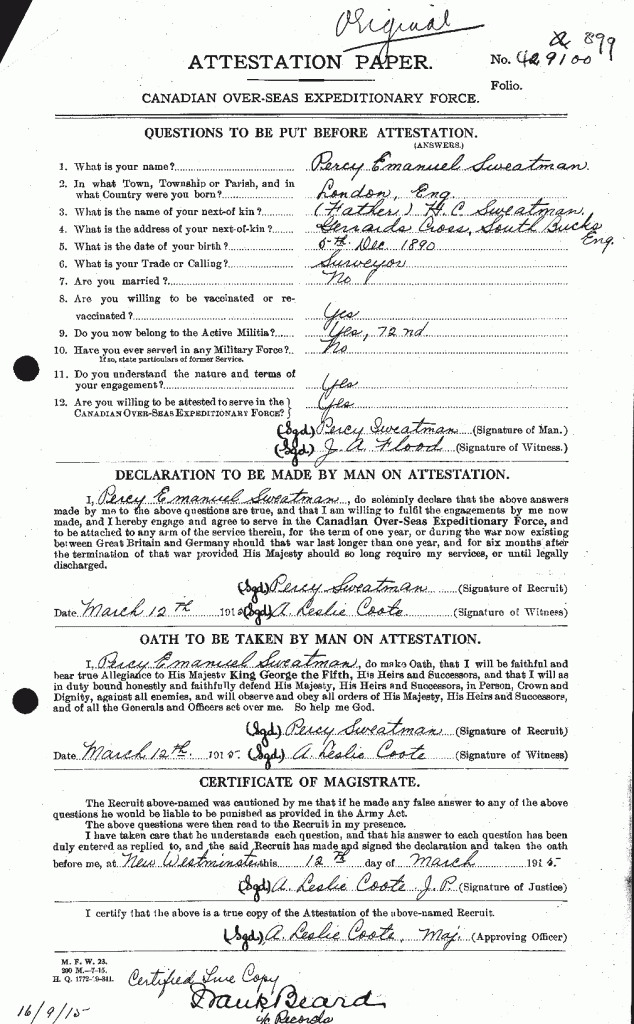 Original
& 899
ATTESTATION PAPER. No. 429100
Folio.
CANADIAN OVER-SEAS EXPEDITIONARY FORCE.
QUESTIONS TO BE PUT BEFORE ATTESTATION.
(ANSWERS.)
1. What is your name? Percy Emanuel Sweatman.
2. In what Town, Township or Parish, and in
what Country were you born? London, Eng
3. What is the name of your next-of kin? (Father) H. C. Sweatman.
4. What is the address of your next-of-kin? Gerrards Cross, South Bucks
Eng.
5. What is the date of your birth? 5th Dec. 1890
6. What is your Trade or Calling? Surveyor
7. Are you married? No
8. Are you willing to be vaccinated or re-
vaccinated? Yes
9. Do you now belong to the Active Militia? Yes, 72nd
10. Have you ever served in any Military Force? No
If so, state particulars of former Service.
11. Do you understand the nature and terms of
your engagement? Yes
12. Are you willing to be attested to serve in the
CANADIAN OVER-SEAS EXPEDITIONARY FORCE? Yes
(Sgd.) Percy Sweatman (Signature of Man.)
(Sgd.) J. A. Flood (Signature of Witness.)
DECLARATION TO BE MADE BY MAN ON ATTESTATION.
I, Percy Emanuel Sweatman, do solemnly declare that the above answers
made by me to the above questions are true, and that I am willing to fulfil the engagements by me now
made, and I hereby engage and agree to serve in the Canadian Over-Seas Expeditionary Force, and
to be attached to any arm of the service therein, for the term of one year, or during the war now existing
between Great Britain and Germany should that war last longer than one year, and for six months after
the termination of that war provided His Majesty should so long require my services, or until legally
discharged.
(Sgd.) Percy Sweatman (Signature of Recruit)
Date March 12th 1915 (Sgd.) A. Leslie Coote (Signature of Witness)
OATH TO BE TAKEN BY MAN ON ATTESTATION.
I, Percy Emanuel Sweatman, do make Oath, that I will be faithful and
bear true Allegiance to His Majesty King George the Fifth, His Heirs and Successors, and that I will as
in duty bound honestly and faithfully defend His Majesty, His Heirs and Successors, in Person, Crown and
Dignity, against all enemies, and will observe and obey all orders of His Majesty, His Heirs and Successors,
and of all the Generals and Officers set over me. So help me God.
(Sgd.) Percy Sweatman (Signature of Recruit)
Date March 12th. 1915. (Sgd.) A. Leslie Coote (Signature of Witness)
CERTIFICATE OF MAGISTRATE.
The Recruit above-named was cautioned by me that if he made any false answer to any of the above
questions he would be liable to be punished as provided in the Army Act.
The above questions were then read to the Recruit in my presence.
I have taken care that he understands each question, and that his answer to each question has been
duly entered as replied to, and the said Recruit has made and signed the declaration and taken the oath
before me, at New Westminster this 12th day of March 1915.
(Sgd) A. Leslie Coote J. P. (Signature of Justice)
I certify that the above is a true copy of the Attestation of the above-named Recruit.
(Sgd.) A. Leslie Coote, Maj. (Approving Officer)
M. F. W. 23.
200 M.—7-15.
H. Q. 1772-39-841.
Certified True Copy
Frank Beard
16/9/15 i/c Records